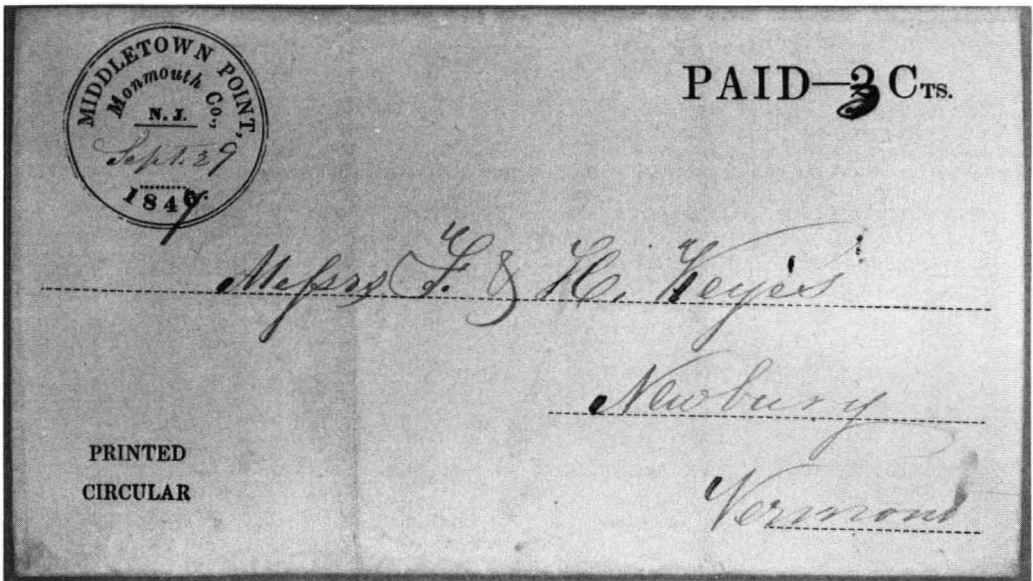 MIDDLETOWN POINT,
Monmouth Co.,
N. J.
Sept. 29
1847.
PAID—3 CTS.
Messrs F. & H. Keyes
Newbury
Vermont
PRINTED
CIRCULAR